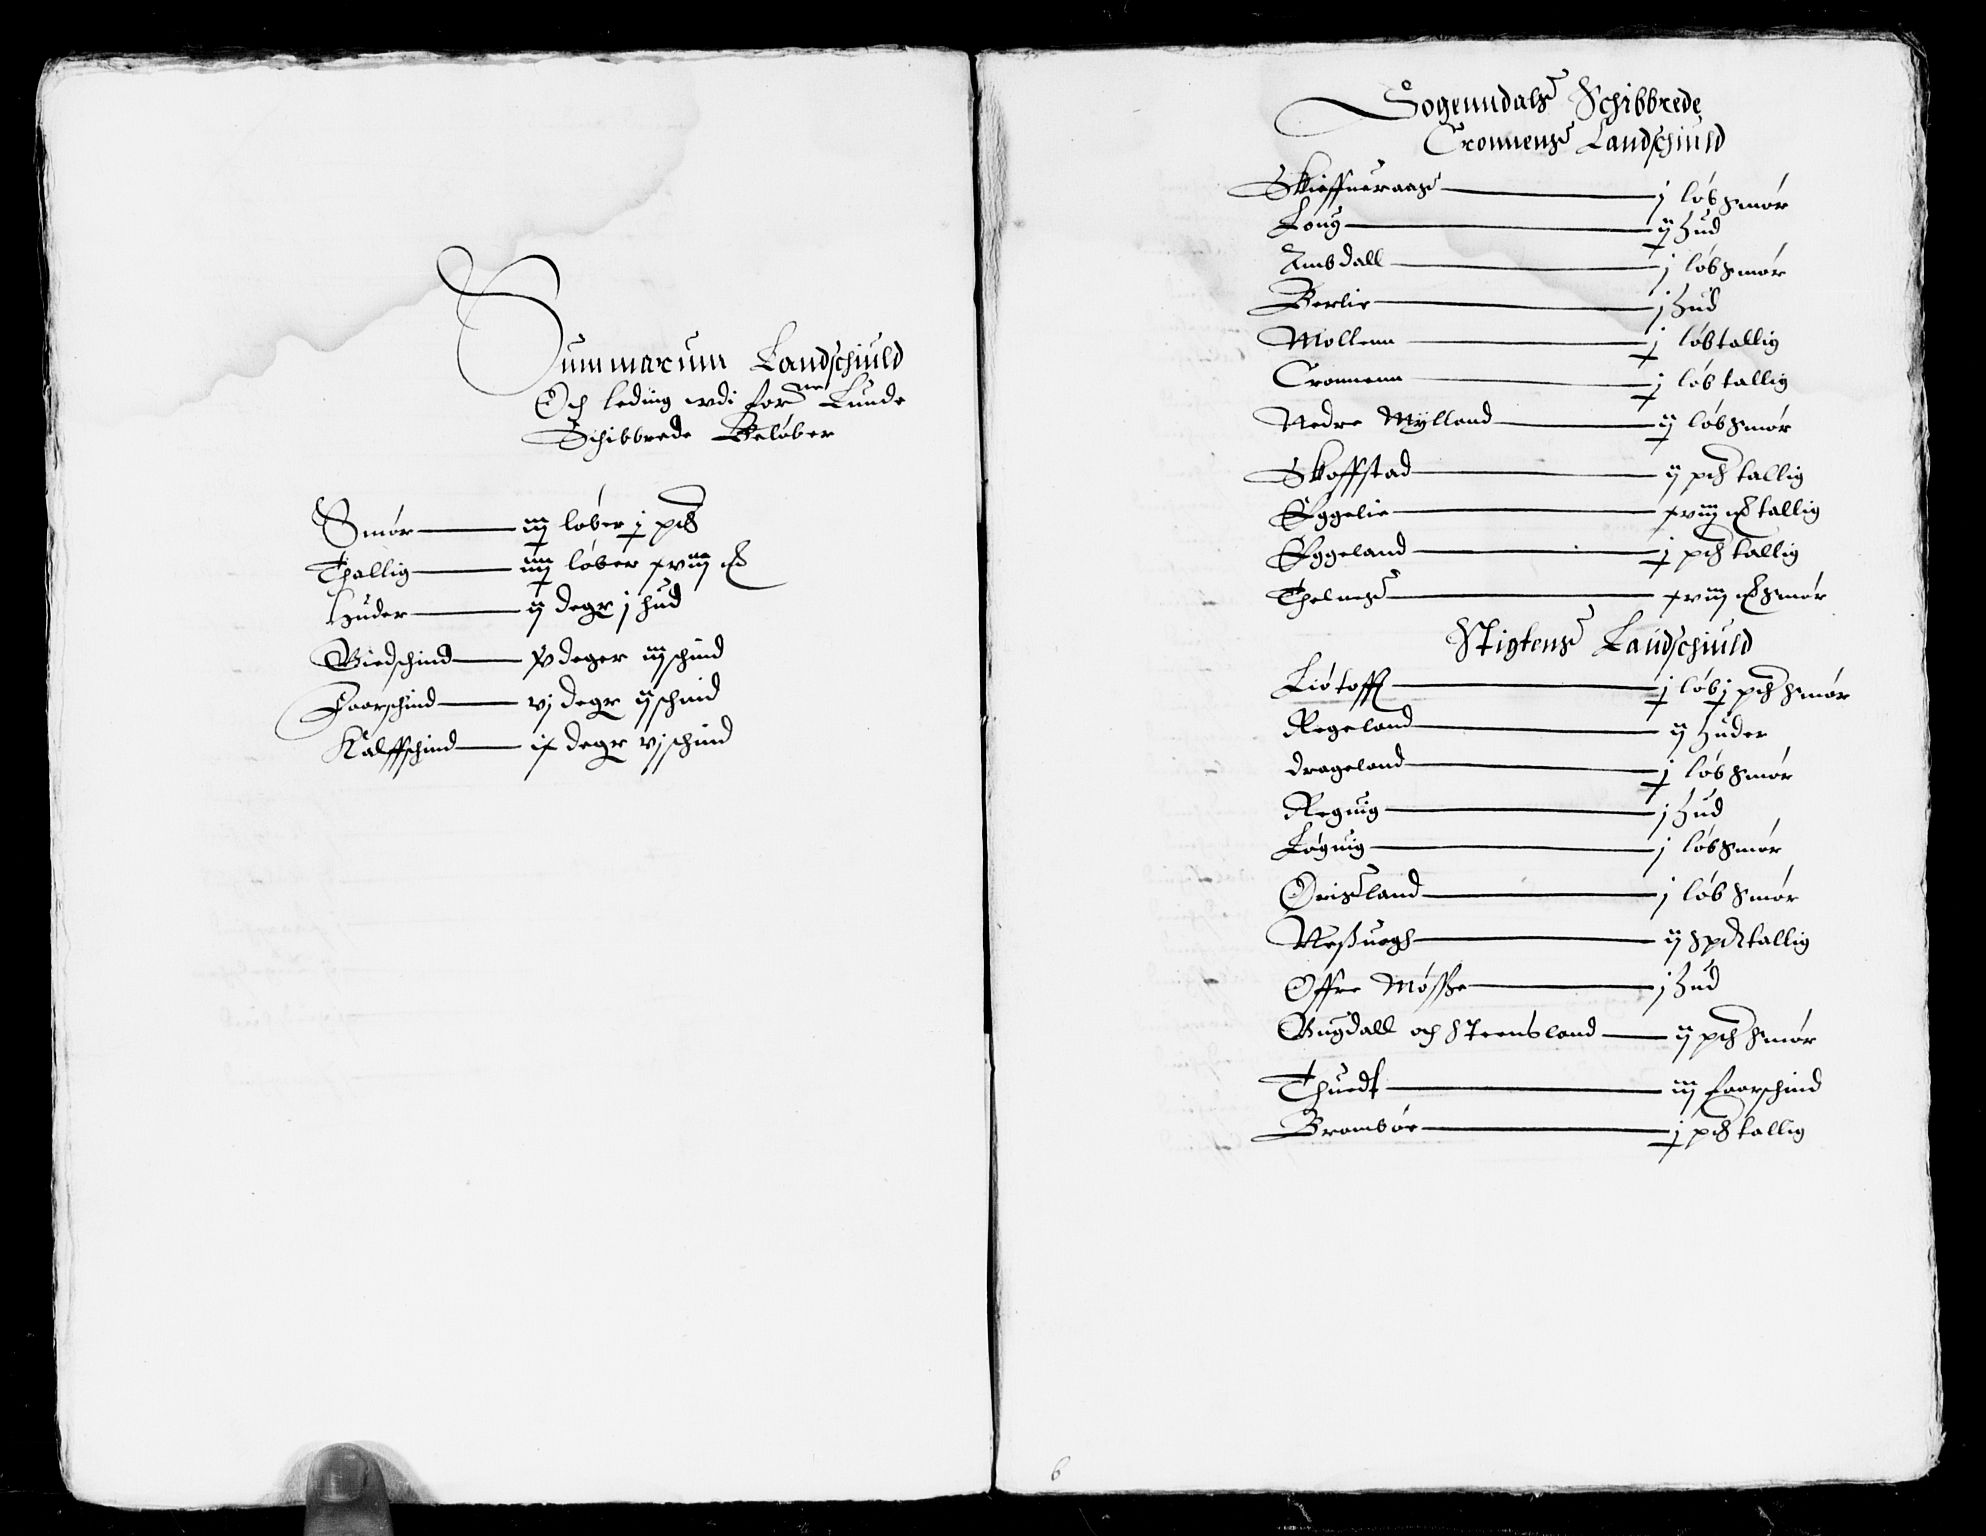 Summarum Landschiuld
Och leding wdi for:ne Lunde
Schibbrede Beløber
Smør iij løber j pd
Thallig iiij løber xviij
Huder ij degr j hud
Giedschind xv deger iij schind
Faarschind vj degr ij schind
Kalffschind ix degr vj schind
Sogenndals Schibbrede
Cronnens Landschiuld
Skieffueraas j løb smør
Loug ij hud
Amdall j løb smør
Berlie j hud
Mollenn j løb tallig
Cronnenn j løb tallig
Nedre Mylland ij løb smør
Skoffstad ij pd tallig
Eggelie xviij tallig
Eggeland j pd tallig
Thelnes xviij smør
Stigtens Landschiuld
Liøtoff j løb j pd smør
Regeland ij huder
drageland j løb smør
Reguig j hud
Løguig j løb smør
Orisland j løb smør
Nessuogh ij spd tallig
Offre Møsse j hud
Bugdall och Steensland ij pd smør
Thuedt iij faarschind
Bromsøe j pd tallig
6